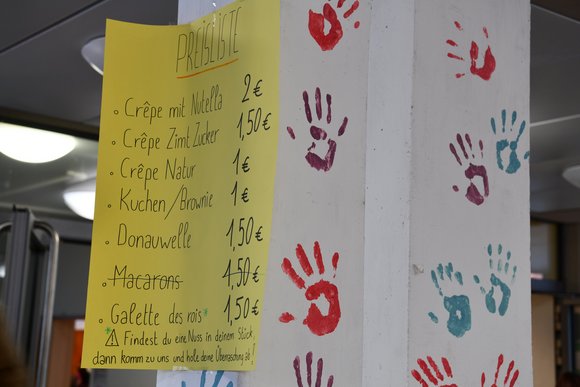 PREISLISTE
• Crêpe mit Nutella 2 €
• Crêpe Zimt Zucker 1,50 €
• Crêpe Natur 1 €
• Kuchen/Brownie 1 €
• Donauwelle 1,50 €
• Macarons 1,50 €
• Galette des rois 1,50 €
⚠ Findest du eine Nuss in deinem Stück,
dann komm zu uns und hole deine Überraschung ab!